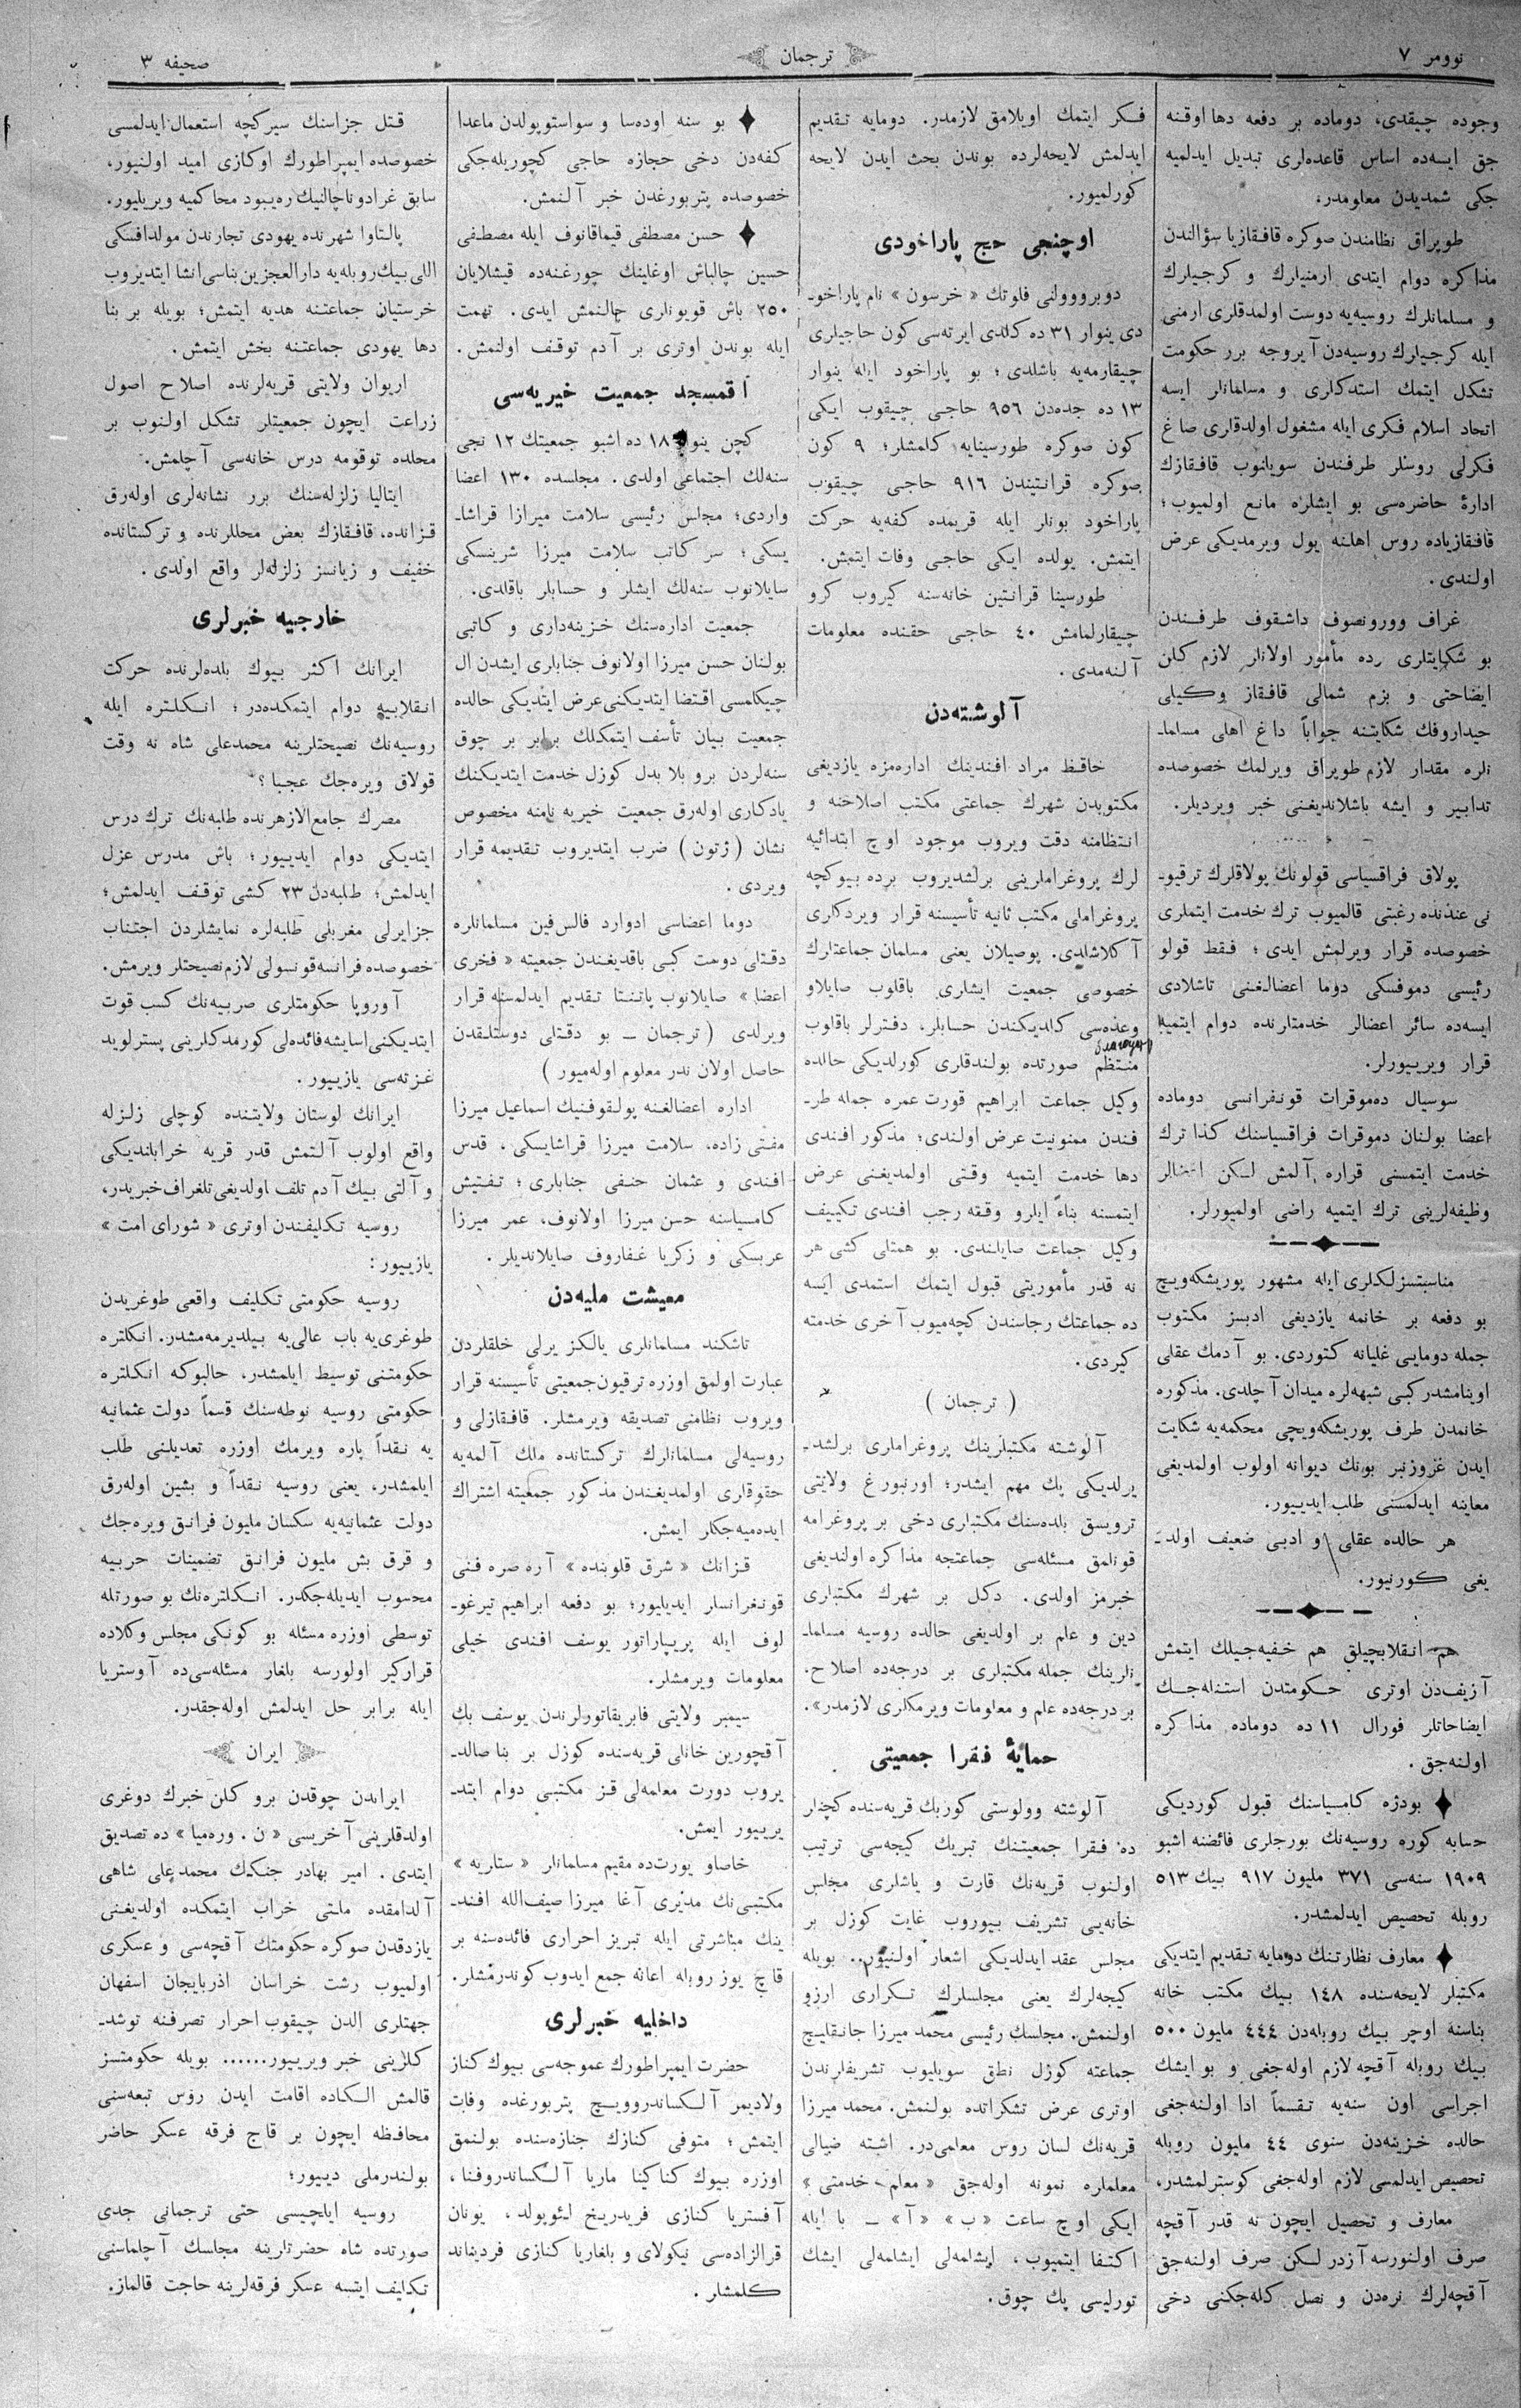 نوومر ٧
ترجمان
صحيفه ٣
وجوده چيقدى، دوماده بر دفعه دها اوقنه
جق ايسه‌ده اساس قاعده‌لرى تبديل ايدلميه
جكى شمديدن معلومدر.
طوپراق نظامندن صوكره قافقازيا سؤالندن
مذاكره دوام ايتدى ارمنيلرك و كرجيلرك
و مسلمانلرك روسيه‌يه دوست اولمدقلرى ارمنى
ايله كرجيلرك روسيه‌دن آيروجه برر حكومت
تشكل ايتمك استدكلرى و مسلمانلر ايسه
اتحاد اسلام فكرى ايله مشغول اولدقلرى صاغ
فكرلى روسلر طرفندن سويلنوب قافقازك
ادارۀ حاضره‌سى بو ايشلره مانع اولميوب؛
قافقازياده روس اهلنه يول ويرمديكى عرض
اولندى.
غراف وورونصوف داشقوف طرفندن
بو شكايتلرى رده مأمور اولانلر لازم كلن
ايضاحتى و بزم شمالى قافقاز وكيلى
حيداروفك شكايتنه جواباً داغ اهلى مسلما-
نلره مقدار لازم طوپراق ويرلمك خصوصده
تدابير و ايشه باشلانديغنى خبر ويرديلر.
پولاق فراقسياسى قولونك پولاقلرك ترقيو-
نى عندنده رغبتى قالميوب ترك خدمت ايتملرى
خصوصده قرار ويرلمش ايدى؛ فقط قولو
رئيسى دموفسكى دوما اعضالغنى تاشلادى
ايسه‌ده سائر اعضالر خدمتلرنده دوام ايتميه
قرار ويرييورلر.
سوسيال ده‌موقرات قونفرانسى دوماده
اعضا بولنان دموقرات فراقسياسنك كذا ترك
خدمت ايتمسنى قراره آلمش لكن اعضالر
وظيفه‌لرينى ترك ايتميه راضى اولميورلر.
مناسبتسزلكلرى ايله مشهور پوريشكه‌ويچ
بو دفعه بر خانمه يازديغى ادبسز مكتوب
جمله دومايى غليانه كتوردى. بو آدمك عقلى
اوينامشدر كبى شبهه‌لره ميدان آچلدى. مذكوره
خانمدن طرف پوريشكه‌ويچى محكمه‌يه شكايت
ايدن غروزنبر بونك ديوانه اولوب اولمديغى
معاينه ايدلمسنى طلب ايدييور.
هر حالده عقلى و ادبى ضعيف اولد-
يغى كورنيور.
هم انقلابچيلق هم خفيه‌جيلك ايتمش
آزيف‌دن اوترى حكومتدن استنله‌جك
ايضاحاتلر فورال ١١ ده دوماده مذاكره
اولنه‌جق.
بودژه كامسياسنك قبول كورديكى
حسابه كوره روسيه‌نك بورجلرى فائضنه اشبو
١٩٠٩ سنه‌سى ٣٧١ مليون ٩١٧ بيك ٥١٣
روبله تحصيص ايدلمشدر.
معارف نظارتنك دومايه تقديم ايتديكى
مكتبلر لايحه‌سنده ١٤٨ بيك مكتب خانه
بناسنه اوچر بيك روبله‌دن ٤٤٤ مليون ٥٠٠
بيك روبله آقچه لازم اوله‌جغى و بو ايشك
اجراسى اون سنه‌يه تقسماً ادا اولنه‌جغى
حالده خزينه‌دن سنوى ٤٤ مليون روبله
تحصيص ايدلمسى لازم اوله‌جغى كوسترلمشدر.
معارف و تحصيل ايچون نه قدر آقچه
صرف اولنورسه آزدر لكن صرف اولنه‌جق
آقچه‌لرك نره‌دن و نصل كله‌جكنى دخى
فكر ايتمك اويلامق لازمدر. دومايه تقديم
ايدلمش لايحه‌لرده بوندن بحث ايدن لايحه
كورلميور.
اوچنجى حج پاراخودى
دوبروولنى فلوتك «خرسون» نام پاراخو-
دى ينوار ٣١ ده كلدى ايرته‌سى كون حاجيلرى
چيقارمه‌يه باشلدى؛ بو پاراخود ايله ينوار
١٣ ده جده‌دن ٩٥٦ حاجى چيقوب ايكى
كون صوكره طورسينايه كلمشلر؛ ٩ كون
صوكره قرانتيندن ٩١٦ حاجى چيقوب
پاراخود بونلر ايله قريمده كفه‌يه حركت
ايتمش. يولده ايكى حاجى وفات ايتمش.
طورسينا قرانتين خانه‌سنه كيروب كرو
چيقارلمامش ٤٠ حاجى حقنده معلومات
آلنه‌مدى.
آلوشته‌دن
حافظ مراد افندينك اداره‌مزه يازديغى
مكتوبدن شهرك جماعتى مكتب اصلاحنه و
انتظامنه دقت ويروب موجود اوچ ابتدائيه
لرك پروغراملرينى برلشديروب برده بيوكچه
پروغراملى مكتب ثانيه تأسيسنه قرار ويردكلرى
آكلاشلدى. پوصيلان يعنى مسلمان جماعتلرك
خصوصى جمعيت ايشلرى باقلوب صايلاو
وعده‌سى كلديكندن حسابلر، دفترلر باقلوب
منتظم صورتده بولندقلرى كورلديكى حالده
وكيل جماعت ابراهيم قورت عمره جمله طر-
فندن ممنونيت عرض اولندى؛ مذكور افندى
دها خدمت ايتميه وقتى اولمديغنى عرض
ايتمسنه بناءً ايلرو وقفه رجب افندى تكييف
وكيل جماعت صايلندى. بو همتلى كشى هر
نه قدر مأموريتى قبول ايتمك استمدى ايسه
ده جماعتك رجاسندن كچه‌ميوب آخرى خدمته
كيردى.
( ترجمان )
آلوشته مكتبلرينك پروغراملرى برلشد-
يرلديكى پك مهم ايشدر؛ اورنبورغ ولايتى
ترويسق بلده‌سنك مكتبلرى دخى بر پروغرامه
قونلمق مسئله‌سى جماعتجه مذاكره اولنديغى
خبرمز اولدى. دكل بر شهرك مكتبلرى
دين و علم بر اولديغى حالده روسيه مسلما-
نلرينك جمله مكتبلرى بر درجه‌ده اصلاح.
بر درجه‌ده علم و معلومات ويرمكلرى لازمدر».
حمايۀ فقرا جمعيتى
آلوشته وولوستى كوربك قريه‌سنده كچنلر
ده فقرا جمعيتنك تبريك كيجه‌سى ترتيب
اولنوب قريه‌نك قارت و ياشلرى مجلس
خانه‌يى تشريف بيوروب غايت كوزل بر
مجلس عقد ايدلديكى اشعار اولنيور.. بويله
كيجه‌لرك يعنى مجلسلرك تكرارى ارزو
اولنمش. مجلسك رئيسى محمد ميرزا جانقليچ
جماعته كوزل نطق سويليوب تشريفلرندن
اوترى عرض تشكراتده بولنمش. محمد ميرزا
قريه‌نك لسان روس معلمى‌در. اشته ضيالى
معلملره نمونه اوله‌جق «معلم خدمتى»
ايكى اوچ ساعت «ب» «آ» — با ايله
اكتفا ايتميوب، ايشلمه‌لى ايشلمه‌لى ايشك
تورليسى پك چوق.
بو سنه اوده‌سا و سواستوپولدن ماعدا
كفه‌دن دخى حجازه حاجى كچوريله‌جكى
خصوصده پتربورغدن خبر آلنمش.
حسن مصطفى قيماقانوف ايله مصطفى
حسين چالباش اوغلينك چورغنه‌ده قيشلايان
٢٥٠ باش قويونلرى چالنمش ايدى. تهمت
ايله بوندن اوترى بر آدم توقف اولنمش.
آقمسجد جمعيت خيريه‌سى
كچن ينوار ١٨ ده اشبو جمعيتك ١٢ نجى
سنه‌لك اجتماعى اولدى. مجلسده ١٣٠ اعضا
واردى؛ مجلس رئيسى سلامت ميرازا قراشا-
يسكى؛ سر كاتب سلامت ميرزا شرينسكى
سايلانوب سنه‌لك ايشلر و حسابلر باقلدى.
جمعيت اداره‌سنك خزينه‌دارى و كاتبى
بولنان حسن ميرزا اولانوف جنابلرى ايشدن ال
چيكلمسى اقتضا ايتديكنى عرض ايتديكى حالده
جمعيت بيان تأسف ايتمكلك برابر بر چوق
سنه‌لردن برو بلا بدل كوزل خدمت ايتديكنك
يادكارى اوله‌رق جمعيت خيريه نامنه مخصوص
نشان (ژتون) ضرب ايتديروب تقديمه قرار
ويردى.
دوما اعضاسى ادوارد فالس‌فين مسلمانلره
دقتلى دوست كبى باقديغندن جمعيته «فخرى
اعضا» صايلانوب پاتنتا تقديم ايدلمسنه قرار
ويرلدى (ترجمان — بو دقتلى دوستلقدن
حاصل اولان ندر معلوم اوله‌ميور)
اداره اعضالغنه پولقوفنيك اسماعيل ميرزا
مفتى زاده، سلامت ميرزا قراشايسكى، قدس
افندى و عثمان حنفى جنابلرى؛ تفتيش
كامسياسنه حسن ميرزا اولانوف، عمر ميرزا
عربسكى و زكريا غفاروف صايلانديلر.
معيشت مليه‌دن
تاشكند مسلمانلرى يالكز يرلى خلقلردن
عبارت اولمق اوزره ترقيون‌جمعيتى تأسيسنه قرار
ويروب نظامنى تصديقه ويرمشلر. قافقازلى و
روسيه‌لى مسلمانلرك تركستانده ملك آلمه‌يه
حقوقلرى اولمديغندن مذكور جمعيته اشتراك
ايده‌ميه‌جكلر ايمش.
قزانك «شرق قلوبنده» آره صره فنى
قونفرانسلر ايديليور؛ بو دفعه ابراهيم تيرغو-
لوف ايله پرپاراتور يوسف افندى خيلى
معلومات ويرمشلر.
سيمبر ولايتى فابريقاتورلرندن يوسف بك
آقجورين خانلى قريه‌سنده كوزل بر بنا صالد-
يروب دورت معلمه‌لى قز مكتبى دوام ايتد-
يرييور ايمش.
خاصاو يورت‌ده مقيم مسلمانلر «ستاريه»
مكتبى‌نك مديرى آغا ميرزا صيف‌الله افند-
ينك مباشرتى ايله تبريز احرارى فائده‌سنه بر
قاچ يوز روبله اعانه جمع ايدوب كوندرمشلر.
داخليه خبرلرى
حضرت ايمپراطورك عموجه‌سى بيوك كناز
ولاديمر آلكساندروويچ پتربورغده وفات
ايتمش؛ متوفى كنازك جنازه‌سنده بولنمق
اوزره بيوك كناكنا ماريا آلكساندروفنا،
آفستريا كنازى فريدريخ لئوپولد، يونان
قرالزاده‌سى نيكولاى و بلغاريا كنازى فرديناند
كلمشلر.
قتل جزاسنك سيركچه استعمال ايدلمسى
خصوصده ايمپراطورك اوكازى اميد اولنيور.
سابق غرادوناچالنيك ره‌يبود محاكميه ويريليور.
پالتاوا شهرنده يهودى تجارندن مولدافسكى
اللى بيك روبله‌يه دارالعجزين بناسى انشا ايتديروب
خرستيان جماعتنه هديه ايتمش؛ بويله بر بنا
دها يهودى جماعتنه بخش ايتمش.
اريوان ولايتى قريه‌لرنده اصلاح اصول
زراعت ايچون جمعيتلر تشكل اولنوب بر
محلده توقومه درس خانه‌سى آچلمش.
ايتاليا زلزله‌سنك برر نشانه‌لرى اوله‌رق
قزانده، قافقازك بعض محللرنده و تركستانده
خفيف و زيانسز زلزله‌لر واقع اولدى.
خارجيه خبرلرى
ايرانك اكثر بيوك بلده‌لرنده حركت
انقلابيه دوام ايتمكده‌در؛ انكلتره ايله
روسيه‌نك نصيحتلرينه محمدعلى شاه نه وقت
قولاق ويره‌جك عجبا؟
مصرك جامع‌الازهرنده طلبه‌نك ترك درس
ايتديكى دوام ايدييور؛ باش مدرس عزل
ايدلمش؛ طلبه‌دن ٢٣ كشى توقف ايدلمش؛
جزايرلى مغربلى طلبه‌لره نمايشلردن اجتناب
خصوصده فرانسه قونسولى لازم نصيحتلر ويرمش.
آوروپا حكومتلرى صربيه‌نك كسب قوت
ايتديكنى اسايشه فائده‌لى كورمدكلرينى پسترلويد
غزته‌سى يازييور.
ايرانك لوستان ولايتنده كوچلى زلزله
واقع اولوب آلتمش قدر قريه خرابلنديكى
و آلتى بيك آدم تلف اولديغى تلغراف خبريدر.
روسيه تكليفندن اوترى «شوراى امت»
يازييور:
روسيه حكومتى تكليف واقعى طوغريدن
طوغرى‌يه باب عالى‌يه بيلديرمه‌مشدر. انكلتره
حكومتنى توسيط ايلمشدر، حالبوكه انكلتره
حكومتى روسيه نوطه‌سنك قسماً دولت عثمانيه
يه نقداً پاره ويرمك اوزره تعديلنى طلب
ايلمشدر، يعنى روسيه نقداً و بشين اوله‌رق
دولت عثمانيه‌يه سكسان مليون فرانق ويره‌جك
و قرق بش مليون فرانق تضمينات حربيه
محسوب ايديله‌جكدر. انكلتره‌نك بو صورتله
توسطى اوزره مسئله بو كونكى مجلس وكلاده
قراركير اولورسه بلغار مسئله‌سى‌ده آوستريا
ايله برابر حل ايدلمش اوله‌جقدر.
ايران
ايراندن چوقدن برو كلن خبرك دوغرى
اولدقلرينى آخريسى «ن. وره‌ميا» ده تصديق
ايتدى. امير بهادر جنكك محمد على شاهى
آلدامقده ملتى خراب ايتمكده اولديغنى
يازدقدن صوكره حكومتك آقچه‌سى و عسكرى
اولميوب رشت خراسان اذربايجان اسفهان
جهتلرى الدن چيقوب احرار تصرفنه توشد-
كلرينى خبر ويرييور...... بويله حكومتسز
قالمش الكاده اقامت ايدن روس تبعه‌سنى
محافظه ايچون بر قاچ فرقه عسكر حاضر
بولندرملى دييور؛
روسيه ايلچيسى حتى ترجمانى جدى
صورتده شاه حضرتلرينه مجلسك آچلماسنى
تكليف ايتسه عسكر فرقه‌لرينه حاجت قالماز.